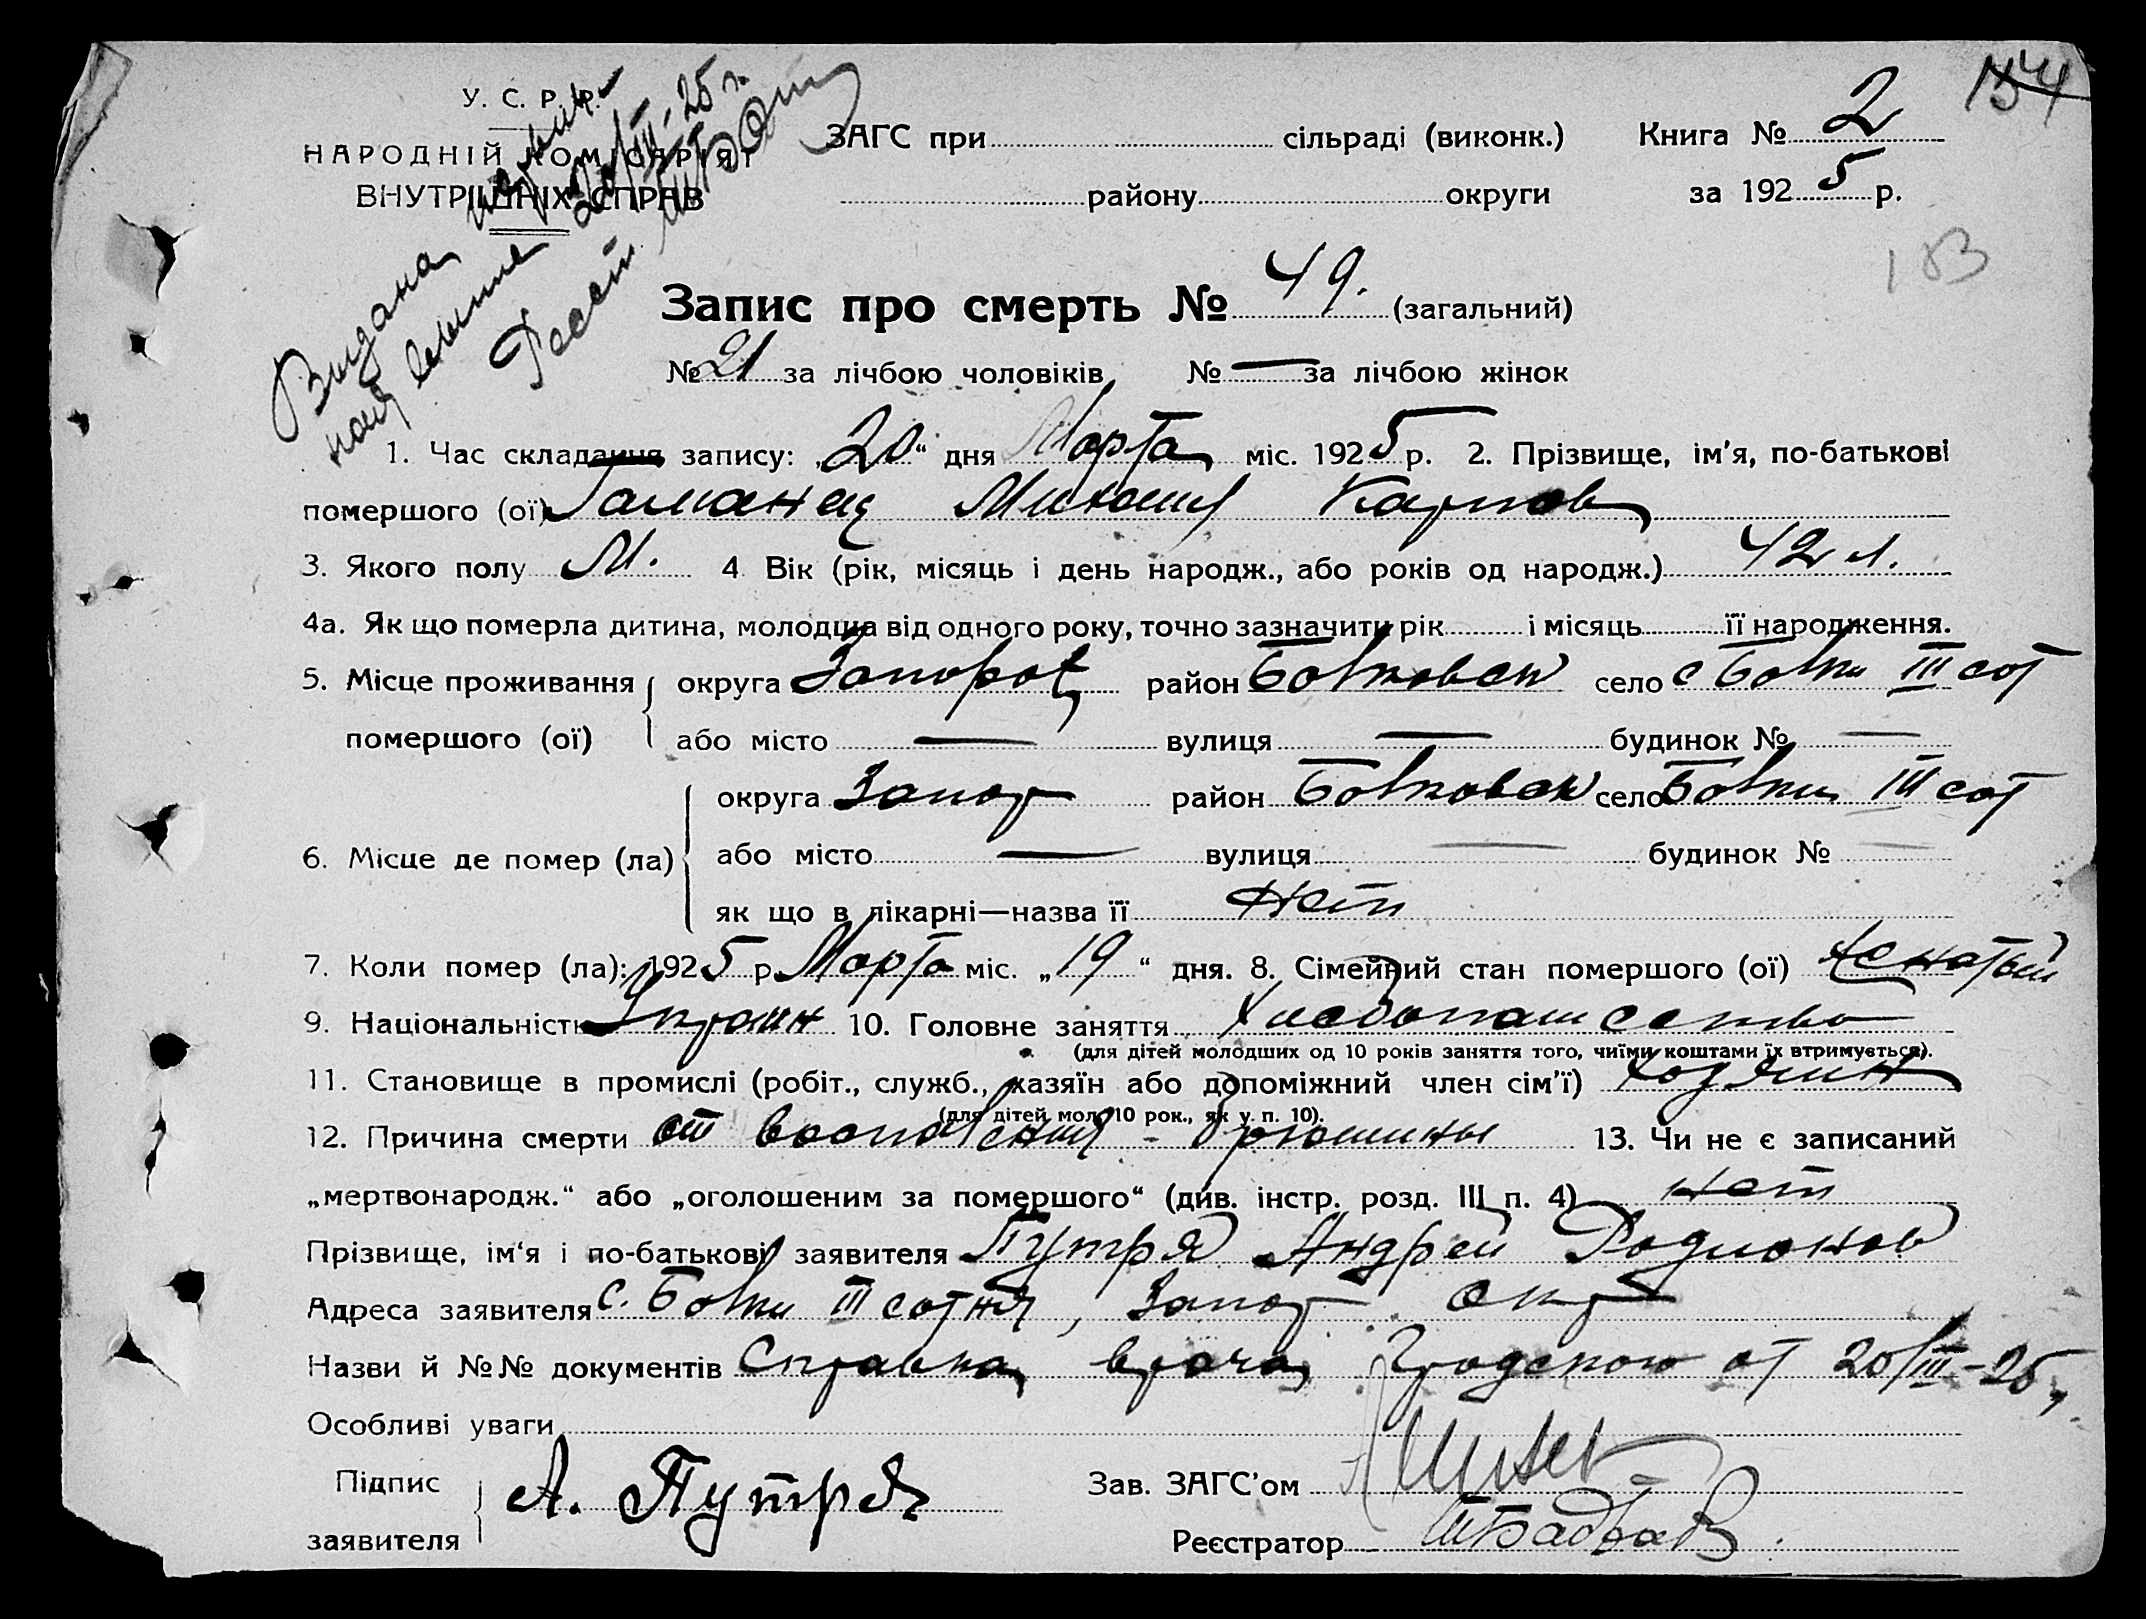 154
У. С. Р. Р.
НАРОДНІЙ КОМІСАРІЯТ
ВНУТРІШНІХ СПРАВ
ЗАГС при сільраді (виконк.) Книга № 2
району округи за 1925 р.
183
Выдана
20/III-25 г.
Запис про смерть № 49. (загальний)
№ 21 за лічбою чоловіків № — за лічбою жінок
1. Час складання запису: „20“ дня Марта міс. 1925 р. 2. Прізвище, ім'я, по-батькові
помершого (ої) Гаманец Михаил Карпов
3. Якого полу М. 4 Вік (рік, місяць і день народж., або років од народж.) 42 л.
4а. Як що померла дитина, молодша від одного року, точно зазначити рік і місяць її народження.
5. Місце проживання округа Запорож район село с III сот
помершого (ої) або місто — вулиця — будинок № —
округа Запор район село III сот
6. Місце де помер (ла) або місто — вулиця — будинок № —
як що в лікарні—назва її Нет
7. Коли помер (ла): 1925 р. Марта міс. „19“ дня. 8. Сімейний стан помершого (ої) Женатый
9. Національність Украин 10. Головне заняття Хлебопашество
(для дітей молодших од 10 років заняття того, чиїми коштами їх втримується).
11. Становище в промислі (робіт., служб., хазяїн або допоміжний член сім'ї) Хозяин
(для дітей мол. 10 рок., як у п. 10).
12. Причина смерти от воспаления брюшины 13. Чи не є записаний
„мертвонародж.“ або „оголошеним за помершого“ (див. інстр. розд. III п. 4) нет
Прізвище, ім'я і по-батькові заявителя Путря Андрей Родионов
Адреса заявителя с. III сотня, Запор окр
Назви й №№ документів Справка врача от 20/III-25 г.
Особливі уваги
Підпис
заявителя А. Путря
Зав. ЗАГС'ом
Реєстратор